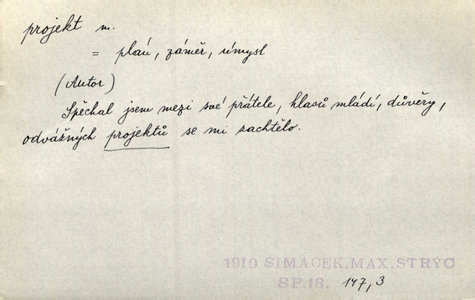 projekt m.
= plán, záměr, úmysl
(Autor)
Spěchal jsem mezi své přátele, hlasů mládí, důvěry,
odvážných projektů se mi zachtělo.
1910 SIMACEK, MAX. STRYC
SP.18. 147,3